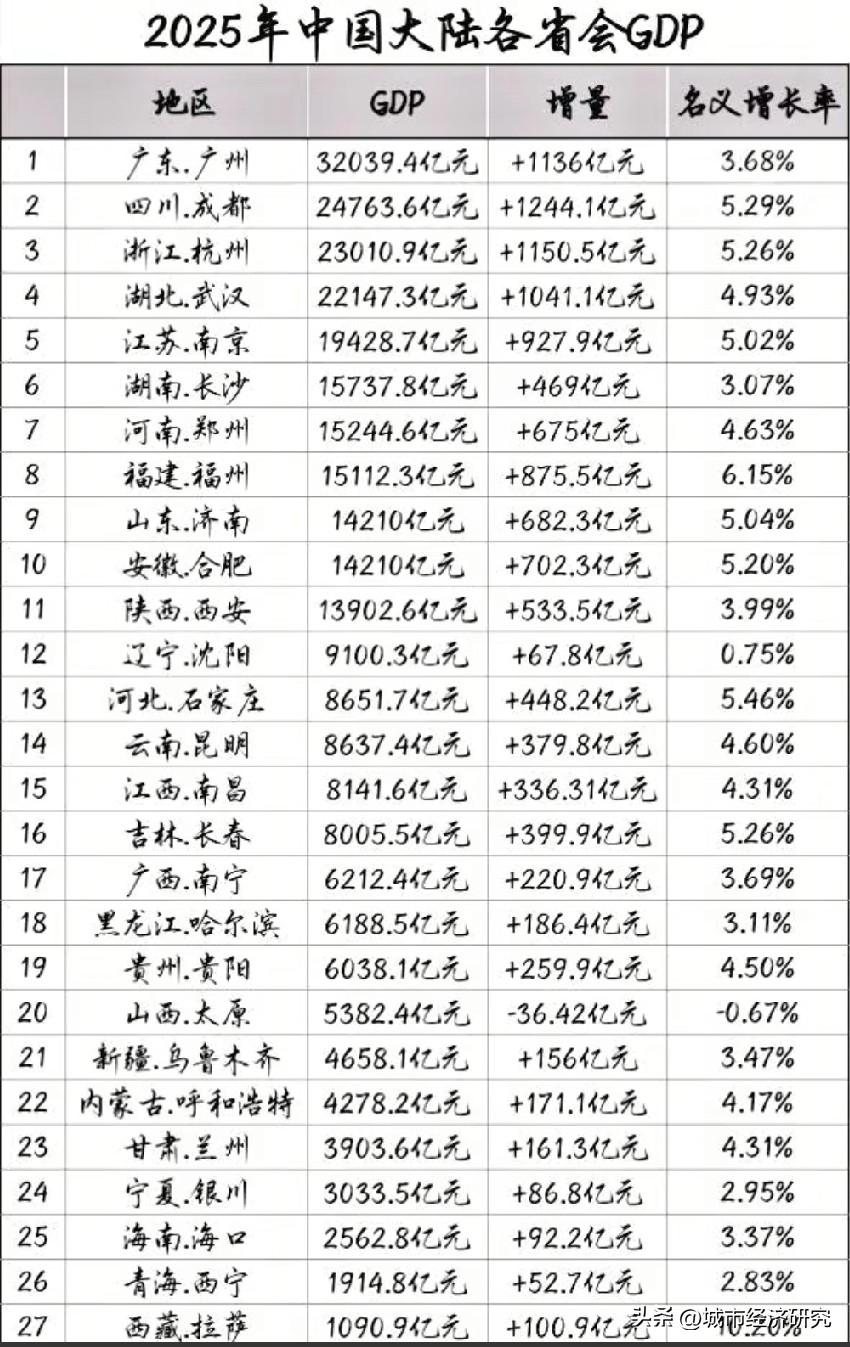 2025年中国大陆各省会GDP
地区 GDP 增量 名义增长率
1 广东.广州 32039.4亿元 +1136亿元 3.68%
2 四川.成都 24763.6亿元 +1244.1亿元 5.29%
3 浙江.杭州 23010.9亿元 +1150.5亿元 5.26%
4 湖北.武汉 22147.3亿元 +1041.1亿元 4.93%
5 江苏.南京 19428.7亿元 +927.9亿元 5.02%
6 湖南.长沙 15737.8亿元 +469亿元 3.07%
7 河南.郑州 15244.6亿元 +675亿元 4.63%
8 福建.福州 15112.3亿元 +875.5亿元 6.15%
9 山东.济南 14210亿元 +682.3亿元 5.04%
10 安徽.合肥 14210亿元 +702.3亿元 5.20%
11 陕西.西安 13902.6亿元 +533.5亿元 3.99%
12 辽宁.沈阳 9100.3亿元 +67.8亿元 0.75%
13 河北.石家庄 8651.7亿元 +448.2亿元 5.46%
14 云南.昆明 8637.4亿元 +379.8亿元 4.60%
15 江西.南昌 8141.6亿元 +336.31亿元 4.31%
16 吉林.长春 8005.5亿元 +399.9亿元 5.26%
17 广西.南宁 6212.4亿元 +220.9亿元 3.69%
18 黑龙江.哈尔滨 6188.5亿元 +186.4亿元 3.11%
19 贵州.贵阳 6038.1亿元 +259.9亿元 4.50%
20 山西.太原 5382.4亿元 -36.42亿元 -0.67%
21 新疆.乌鲁木齐 4658.1亿元 +156亿元 3.47%
22 内蒙古.呼和浩特 4278.2亿元 +171.1亿元 4.17%
23 甘肃.兰州 3903.6亿元 +161.3亿元 4.31%
24 宁夏.银川 3033.5亿元 +86.8亿元 2.95%
25 海南.海口 2562.8亿元 +92.2亿元 3.37%
26 青海.西宁 1914.8亿元 +52.7亿元 2.83%
27 西藏.拉萨 1090.9亿元 +100.9亿元 10.20%
头条 @城市经济研究